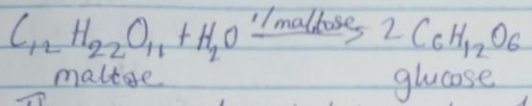 C₁₂H₂₂O₁₁ + H₂O maltose 2C₆H₁₂O₆
maltose glucose